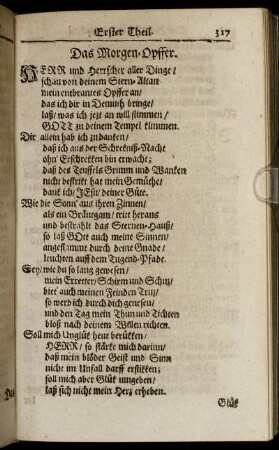 Erster Theil. 317
Das Morgen-Opffer.
HERR und Herrscher aller Dinge/
schau von deinem Stern-Altan
mein entbrantes Opffer an/
das ich dir in Demuth bringe/
laß/ was ich jetz an will stimmen/
GOTT zu deinem Tempel klimmen.
Dir allein hab ich zu danken/
daß ich aus der Schrekniß-Nacht
ohn' Erschrekken bin erwacht;
daß des Teuffels Grimm und Wanken
nicht bestrikt hat mein Gemühte/
dank ich/ JEsu/ deiner Güte.
Wie die Sonn' aus ihren Zinnen/
als ein Bräutgam/ tritt heraus
und bestrahlt das Sternen-Hauß/
so laß GOtt auch meine Sinnen/
angeflammt durch deine Gnade/
leuchten auff dem Tugend-Pfade.
Sey/ wie du so lang gewesen/
mein Erretter/ Schirm und Schutz/
biet' auch meinen Feinden Trutz/
so werd ich durch dich genesen/
und den Tag mein Thun und Tichten
bloß nach deinem Willen richten.
Soll mich Unglük heut berükken/
HERR/ so stärke mich darinn/
daß mein blöder Geist und Sinn
nicht im Unfall darff erstikken;
soll mich aber Glük umgeben/
laß sich nicht mein Herz erheben.
Glük